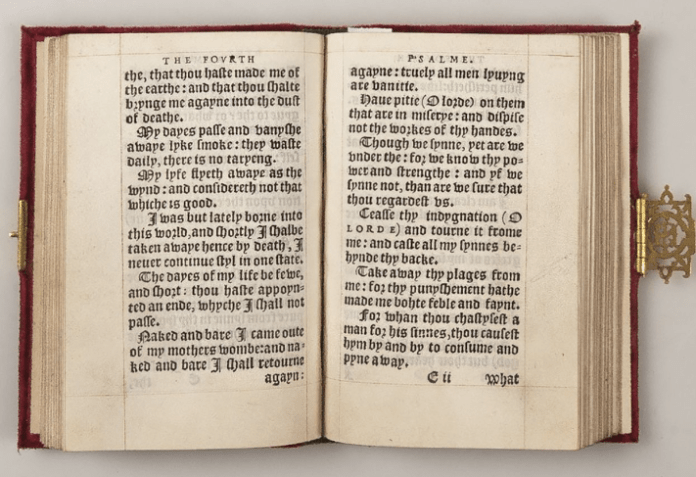 THE FOVRTH
the, that thou haste made me of
the earthe: and that thou shalte
brynge me agayne into the dust
of deathe.
My dayes passe and vanyshe
awaye lyke smoke: they waste
daily, there is no taryeng.
My lyfe flyeth awaye as the
wynd: and considereth not that
whiche is good.
I was but lately borne into
this world, and shortly I shalbe
taken awaye hence by death, I
neuer continue styl in one state.
The dayes of my life be fewe,
and short: thou haste appoyn-
ted an ende, whyche I shall not
passe.
Naked and bare I came oute
of my mothers wombe: and na-
ked and bare I shall retourne
agayn:
PSALME.
agayne: truely all men lyuyng
are vanitie.
Haue pitie (O lorde) on them
that are in miserye: and dispise
not the workes of thy handes.
Though we synne, yet are we
vnder the: for we know thy po-
wer and strengthe: and yf we
synne not, than are we sure that
thou regardest vs.
Ceasse thy indygnation (O
LORDE) and tourne it frome
me: and caste all my synnes be-
hynde thy backe.
Take away thy plages from
me: for thy punyshement hathe
made me bothe feble and faynt.
For whan thou chastysest a
man for his sinnes, thou causest
hym by and by to consume and
pyne away.
E ii What